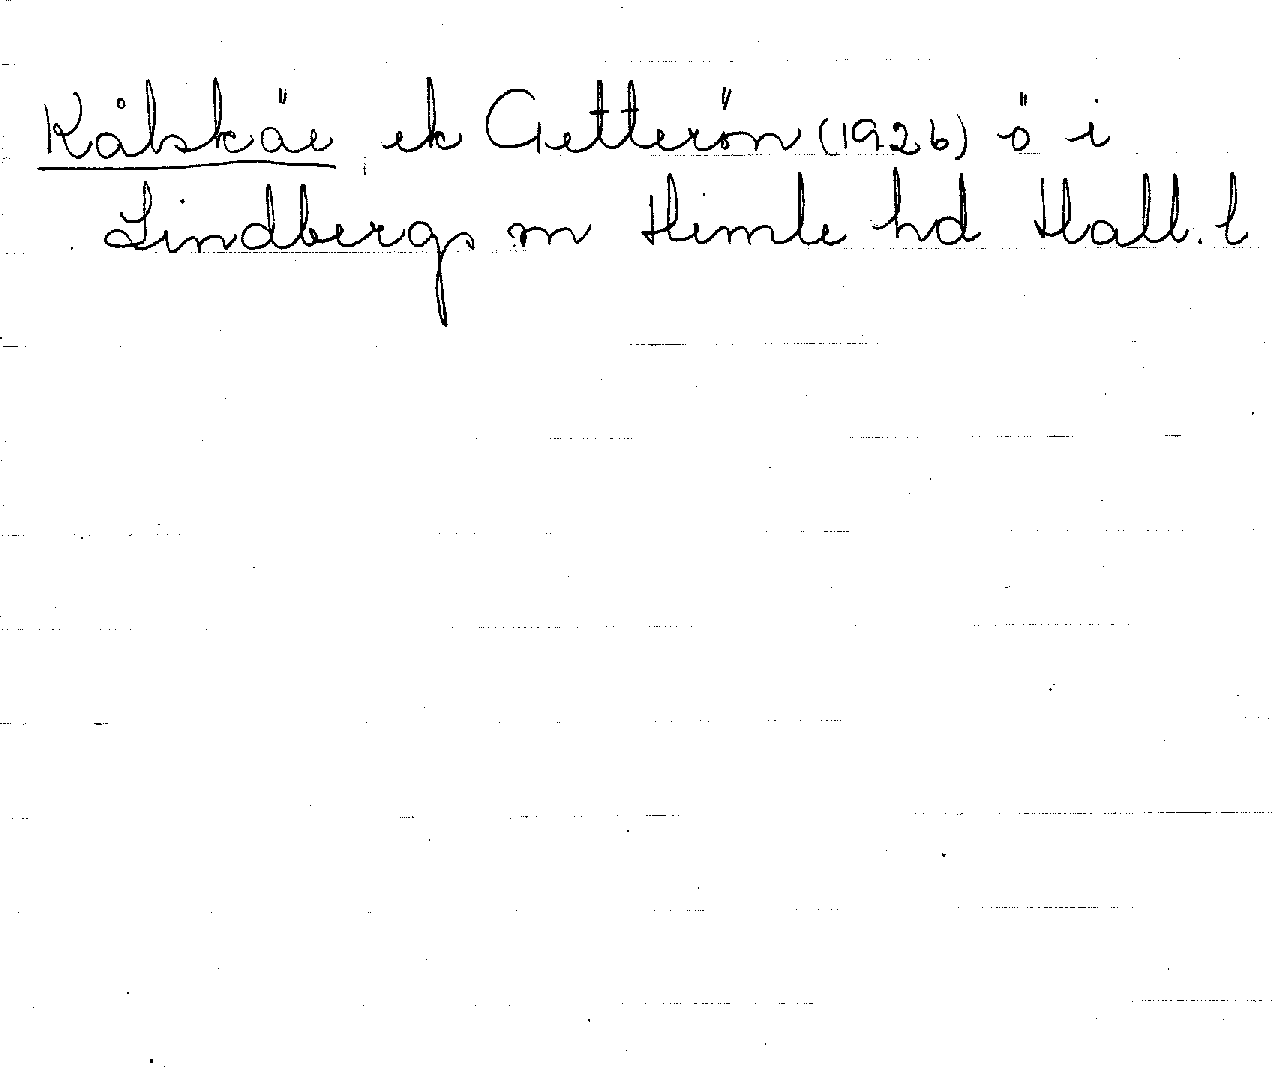 Kålskär ek Getterön (1926) ö i
Lindbergs sn Himle hd Hall. l